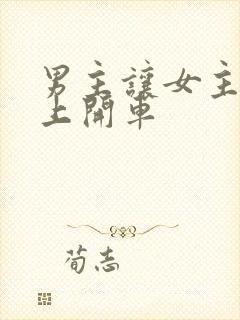 男主讓女主
上開車
荀志